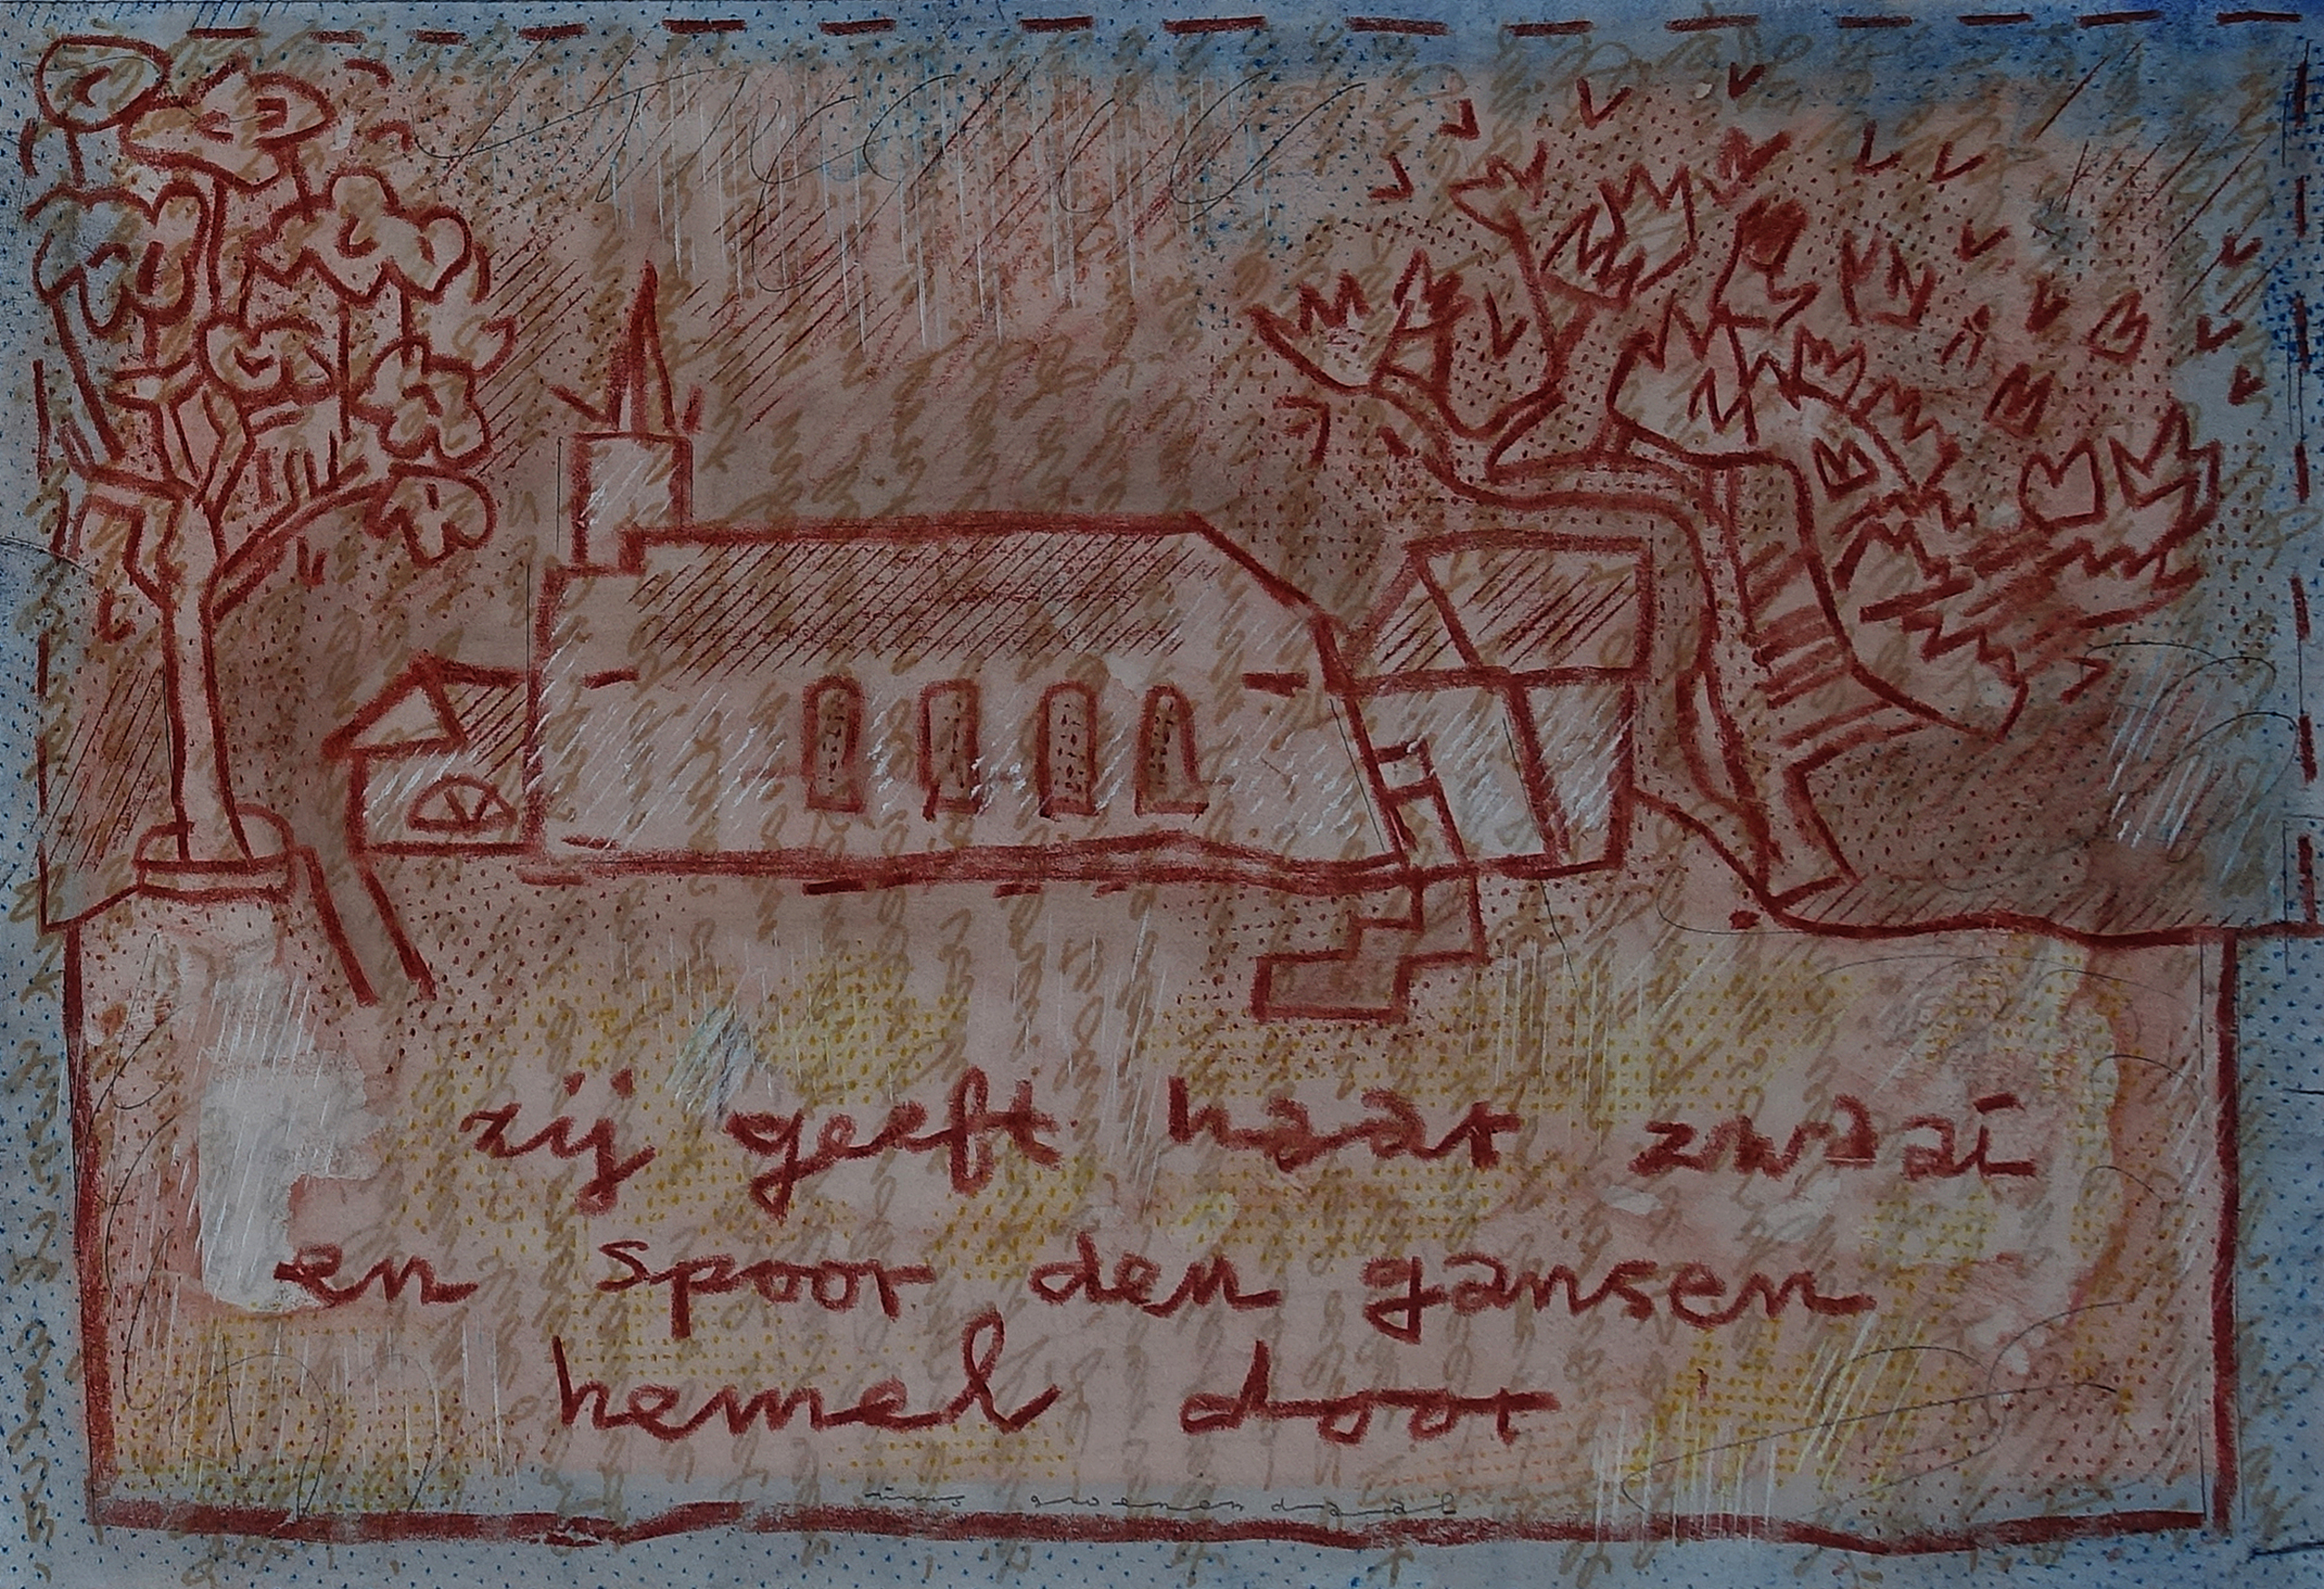 zij geeft haar zwaai
en spoor den gansen
hemel door
rinus groenendaal